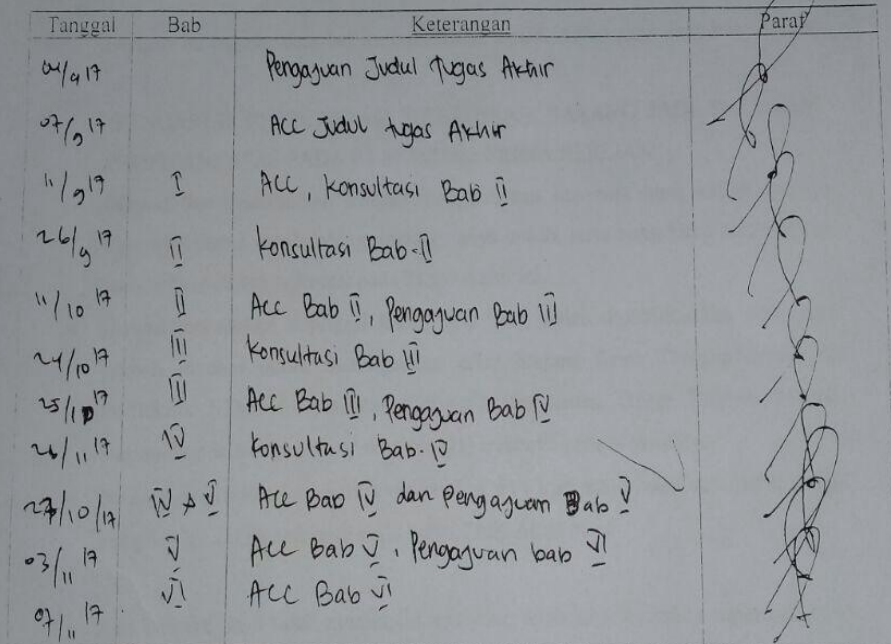 Tanggal Bab Keterangan Paraf
04/9 17 Pengajuan Judul Tugas Akhir
07/9 17 ACC Judul tugas Akhir
11/9 17 I ACC, Konsultasi Bab II
26/9 17 II Konsultasi Bab. II
11/10 17 II Acc Bab II, Pengajuan Bab III
24/10 17 III Konsultasi Bab III
25/10 17 III Acc Bab III, Pengajuan Bab IV
26/11 17 IV Konsultasi Bab. IV
27/10/17 IV & V Acc Bab IV dan Pengajuan Bab V
03/11 17 V Acc Bab V, Pengajuan bab VI
07/11 17 VI Acc Bab VI